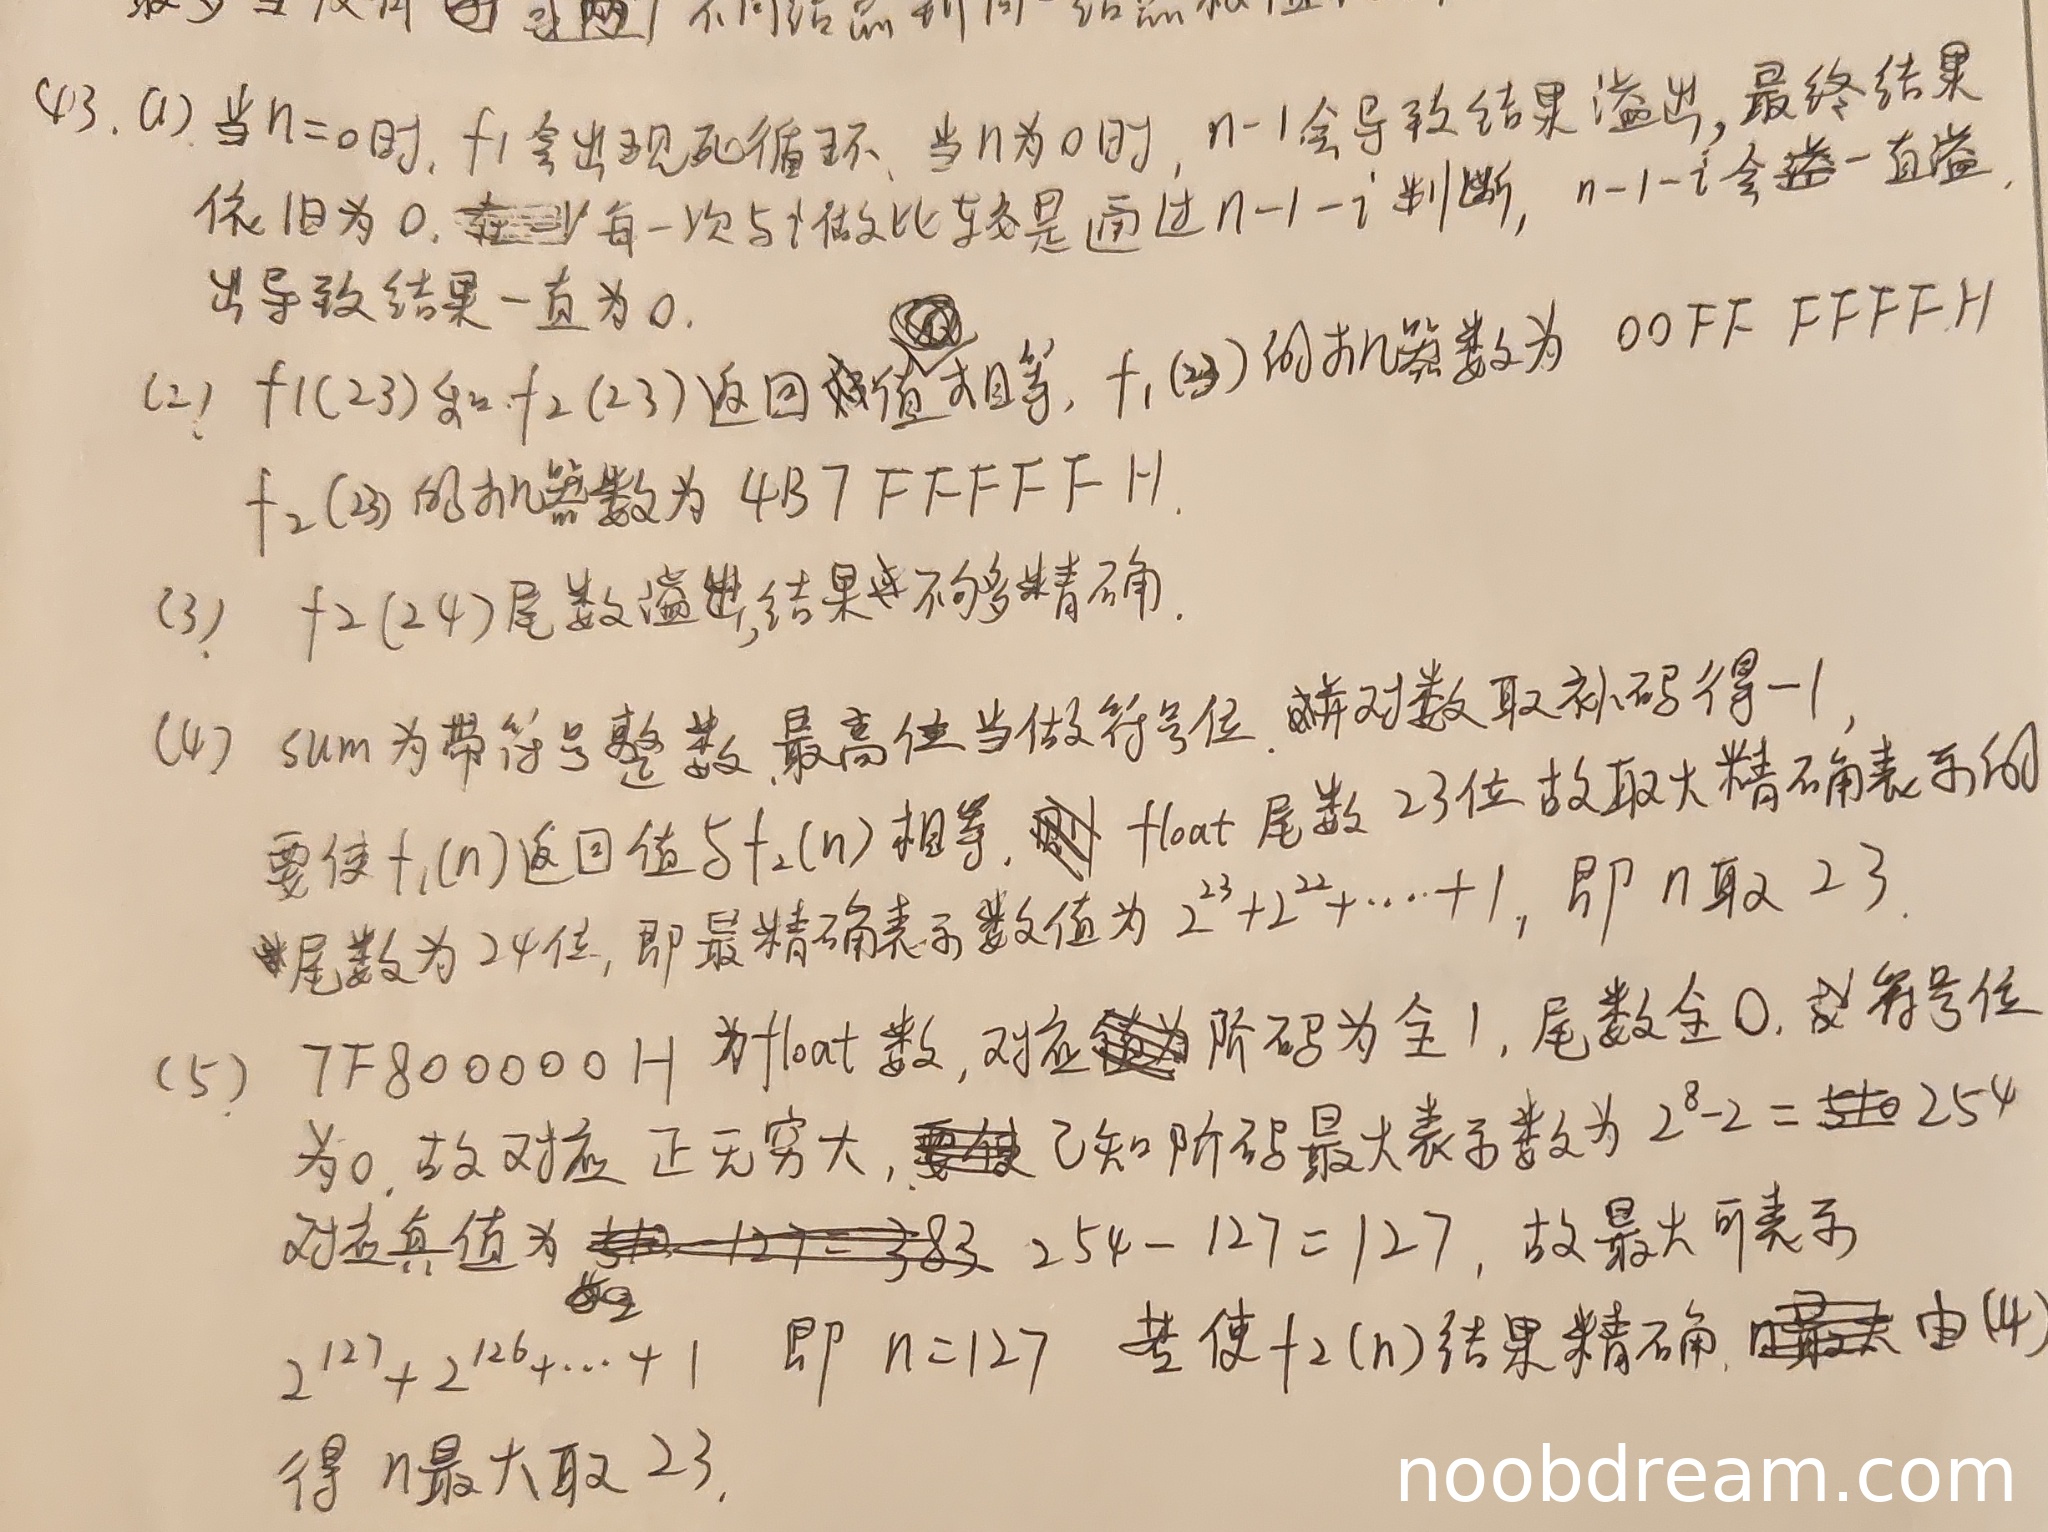 43. (1) 当n=0时, f1会出现死循环、当n为0时, n-1会导致结果溢出, 最终结果
依旧为0. 每一次与i做比较是通过n-1-i判断, n-1-i会一直溢
出导致结果一直为0.
(2) f1(23)和f2(23)返回值相等, f1(23)的机器数为 00FF FFFFH
f2(23)的机器数为 4B7FFFFFH.
(3) f2(24)尾数溢出,结果不够精确.
(4) sum为带符号整数,最高位当做符号位.对数取补码得-1,
要使f1(n)返回值与f2(n)相等, float尾数23位故取大精确表示的
尾数为24位, 即最精确表示数值为 2^23+2^22+……+1, 即 n取 23.
(5) 7F800000H 为float数, 对应阶码为全1, 尾数全0, 符号位
为0, 故对应 正无穷大, 已知阶码最大表示数为 2^8-2 = 254
对应真值为 254-127=127, 故最大可表示
2^127+2^126+…+1 即 n=127 若使f2(n)结果精确, 由(4)
得 n最大取 23.
noobdream.com